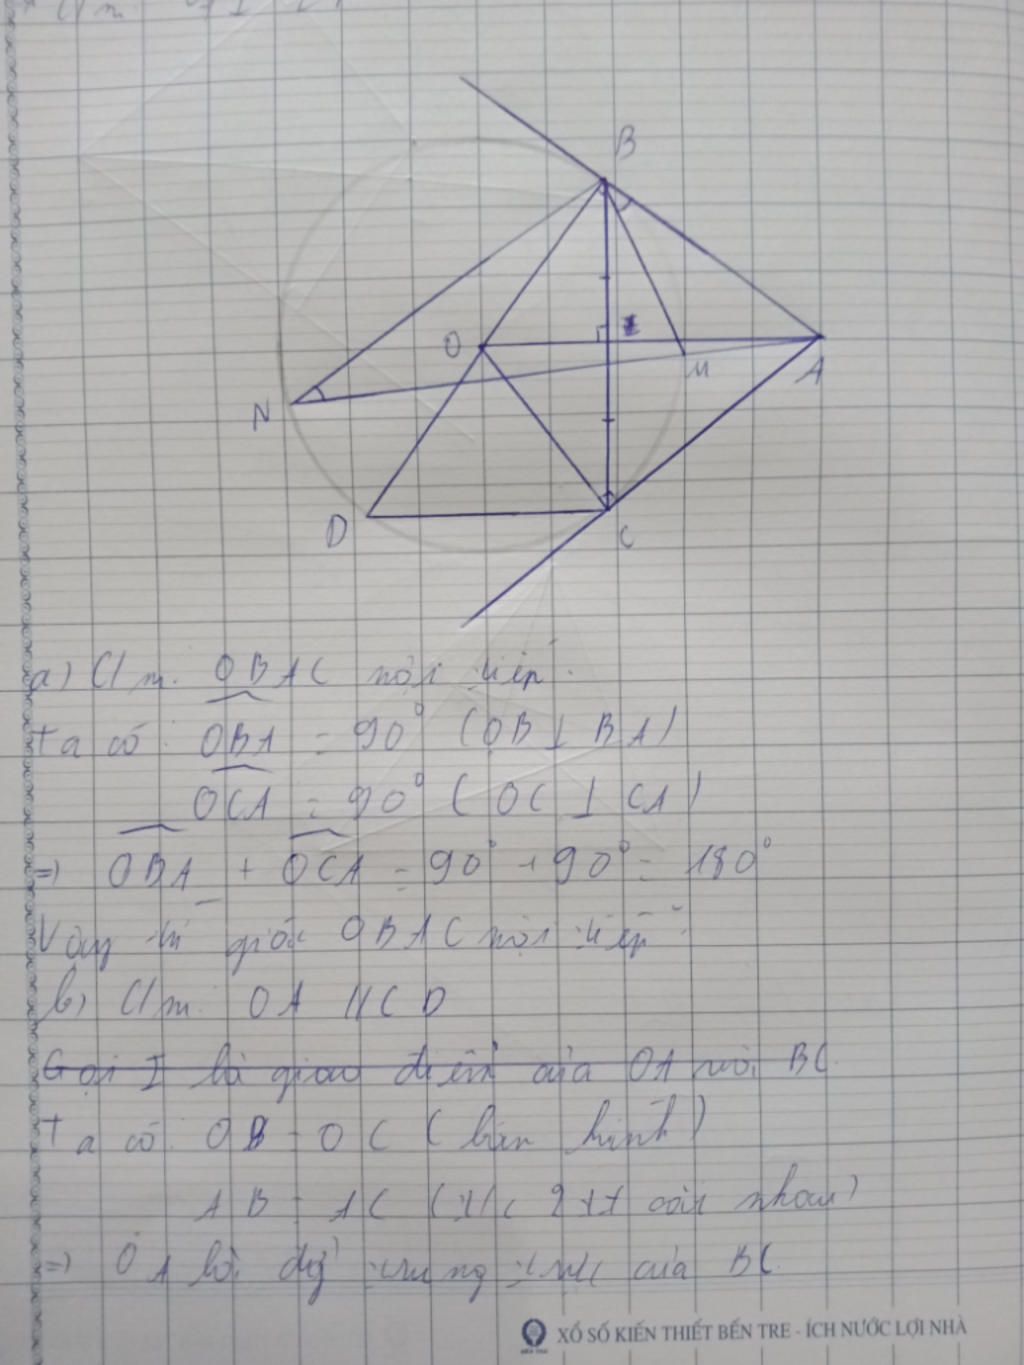 B
O
I
M
A
N
D
C
a) C/m. OBAC nội tiếp.
Ta có: OBA = 90° (OB ⊥ BA)
OCA = 90° (OC ⊥ CA)
=> OBA + OCA = 90° + 90° = 180°
Vậy tứ giác OBAC nội tiếp
b) C/m: OA // CD
Gọi I là giao điểm của OA với BC.
Ta có: OB = OC (bán kính)
AB = AC (t/c 2 tt cắt nhau)
=> OA là đg trung trực của BC
XỔ SỐ KIẾN THIẾT BẾN TRE - ÍCH NƯỚC LỢI NHÀ